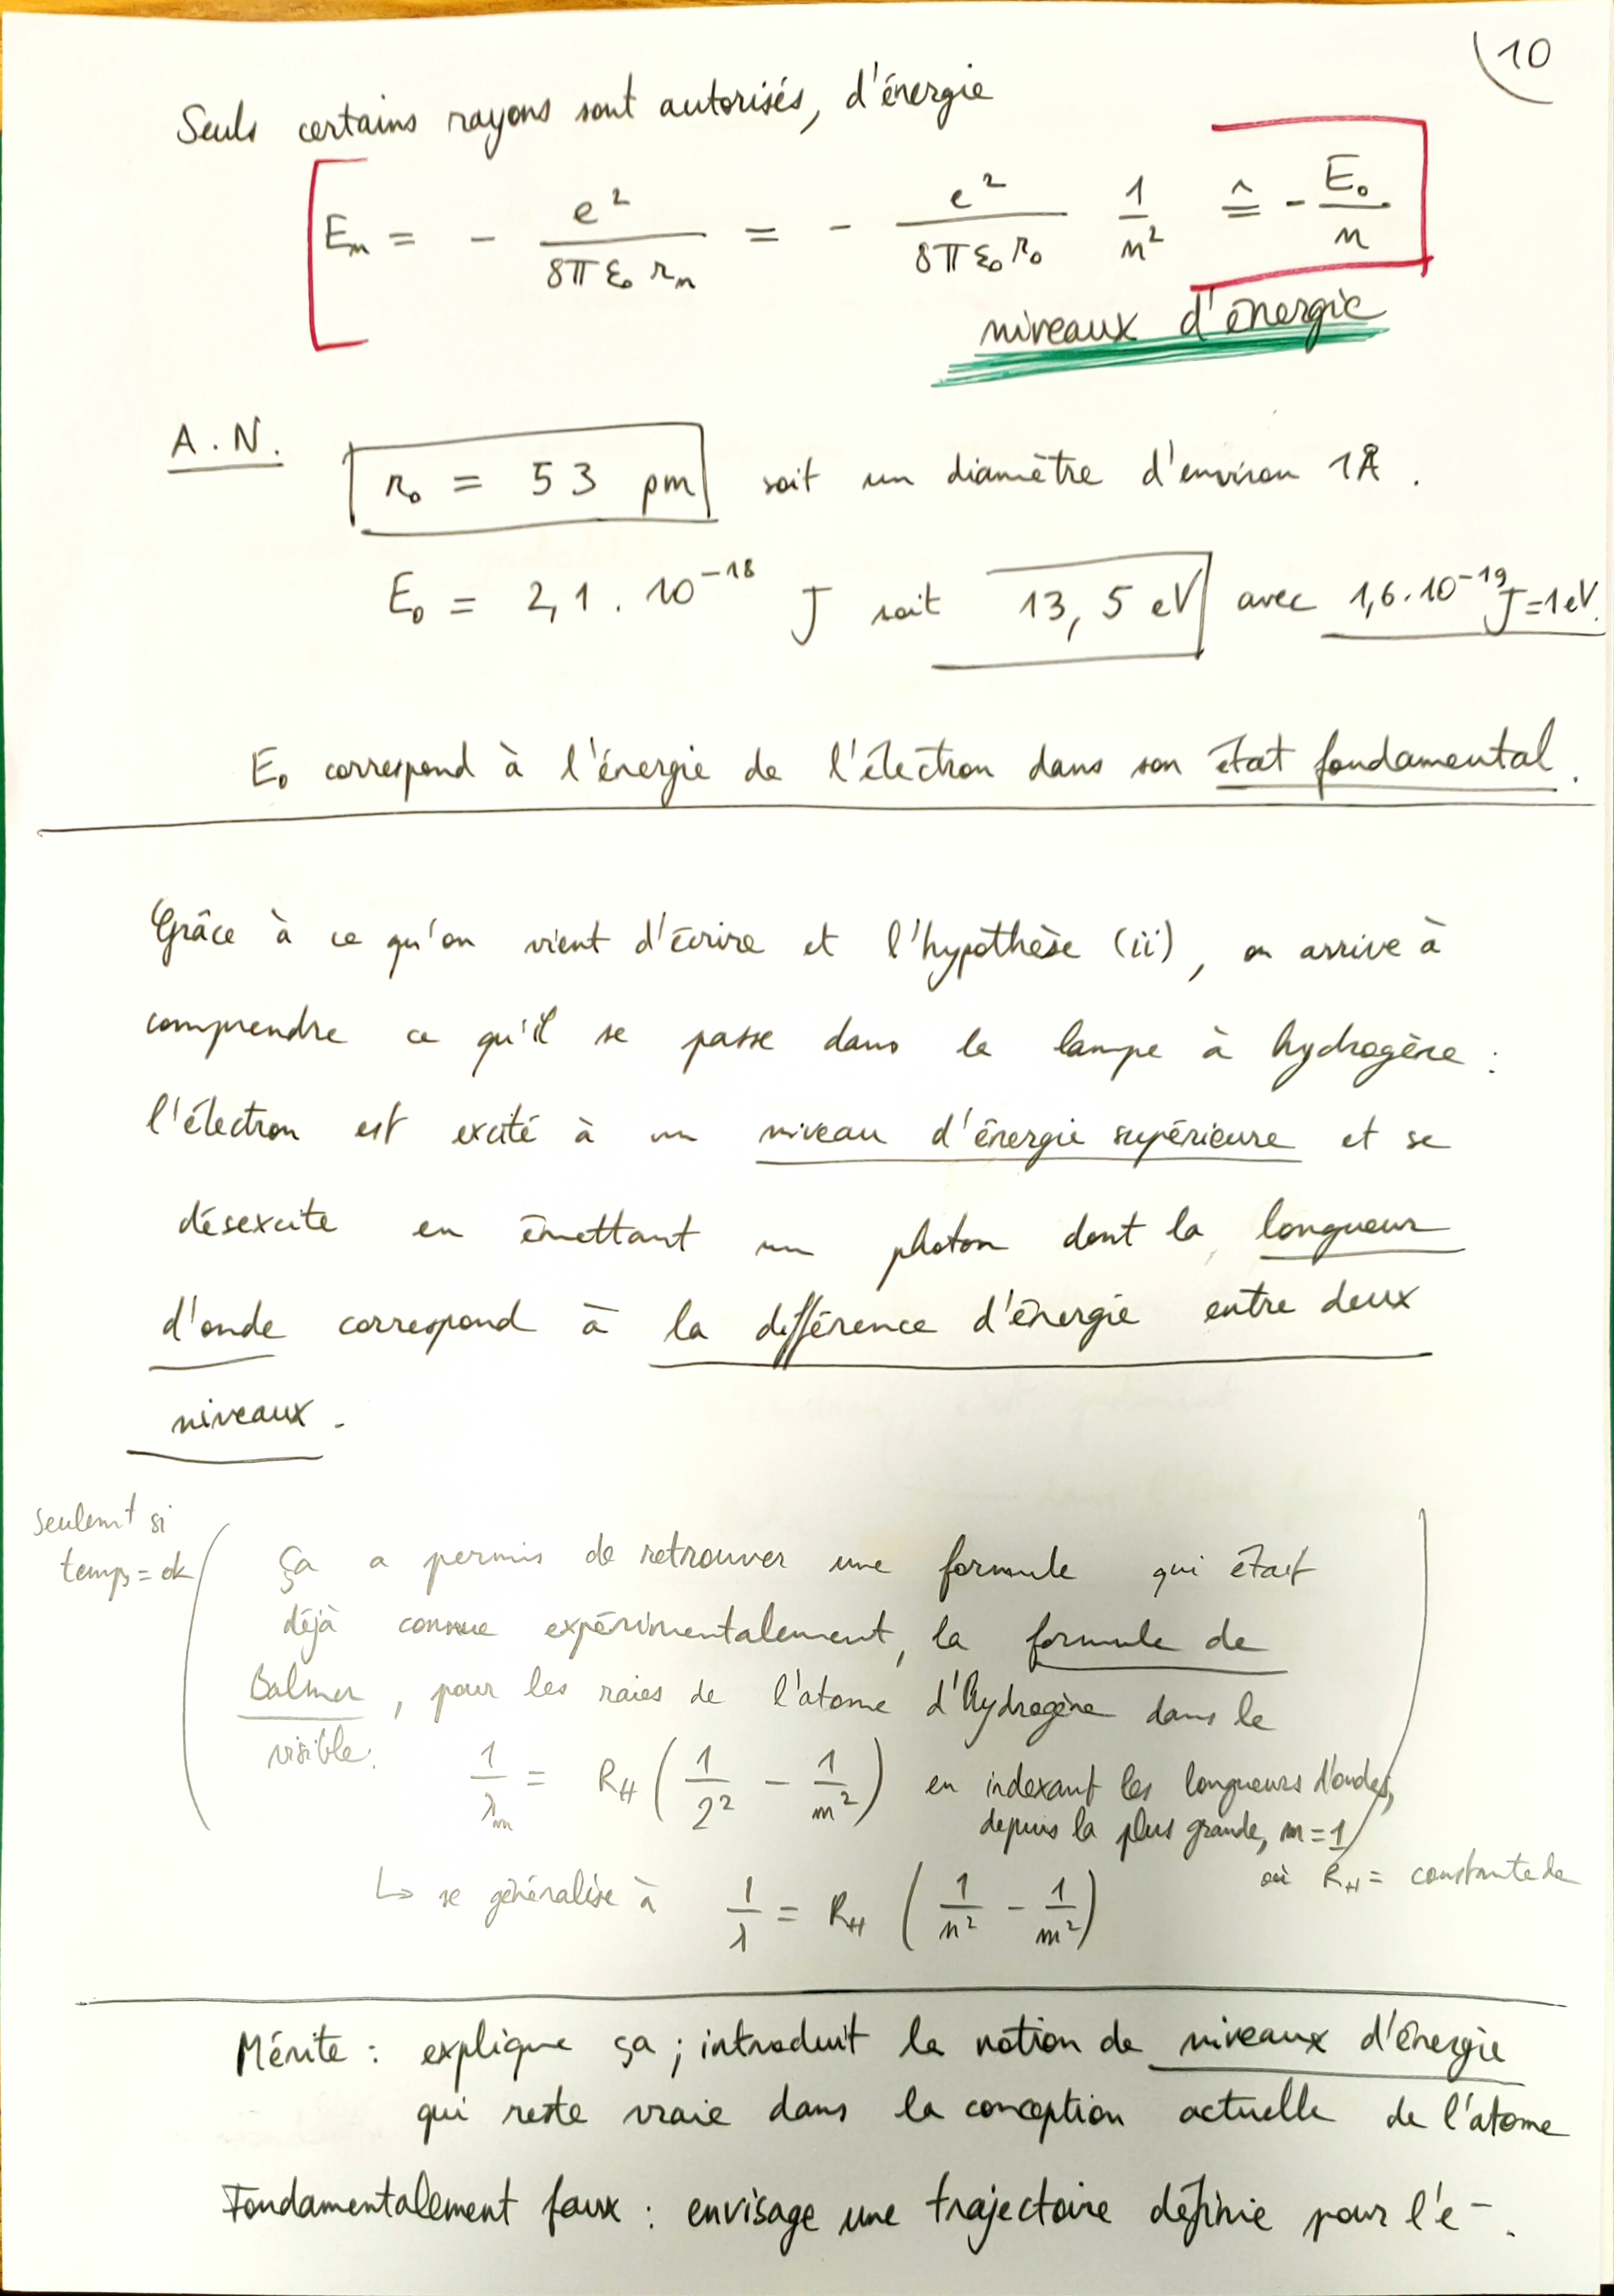 10
Seuls certains rayons sont autorisés, d'énergie
E_n = - e² / (8π ε₀ r_n) = - e² / (8π ε₀ r₀) 1/n² ≙ - E₀/n
niveaux d'énergie
A.N. r₀ = 53 pm soit un diamètre d'environ 1Å.
E₀ = 2,1 . 10⁻¹⁸ J soit 13,5 eV avec 1,6.10⁻¹⁹ J = 1 eV.
E₀ correspond à l'énergie de l'électron dans son état fondamental.
Grâce à ce qu'on vient d'écrire et l'hypothèse (ii), on arrive à
comprendre ce qu'il se passe dans la lampe à hydrogène :
l'électron est excité à un niveau d'énergie supérieure et se
désexcite en émettant un photon dont la longueur
d'onde correspond à la différence d'énergie entre deux
niveaux.
seulemt si
temps = ok
Ça a permis de retrouver une formule qui était
déjà connue expérimentalement, la formule de
Balmer, pour les raies de l'atome d'hydrogène dans le
visible : 1/λ_m = R_H (1/2² - 1/m²) en indexant les longueurs d'ondes,
depuis la plus grande, m = 1
où R_H = constante de
↳ se généralise à 1/λ = R_H (1/n² - 1/m²)
Mérite : explique ça ; introduit la notion de niveaux d'énergie
qui reste vraie dans la conception actuelle de l'atome
Fondamentalement faux : envisage une trajectoire définie pour l'e⁻.